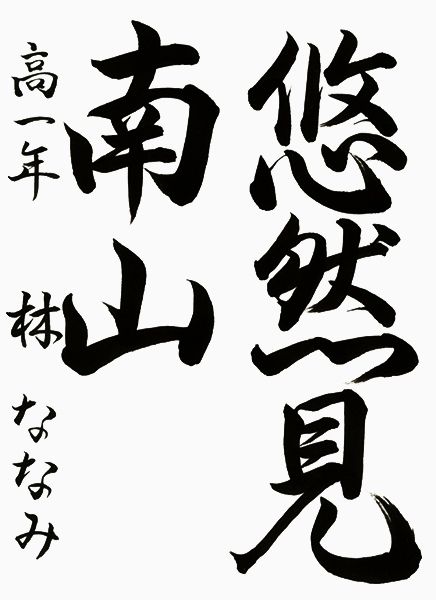 悠然見
南山
高一年 林 ななみ